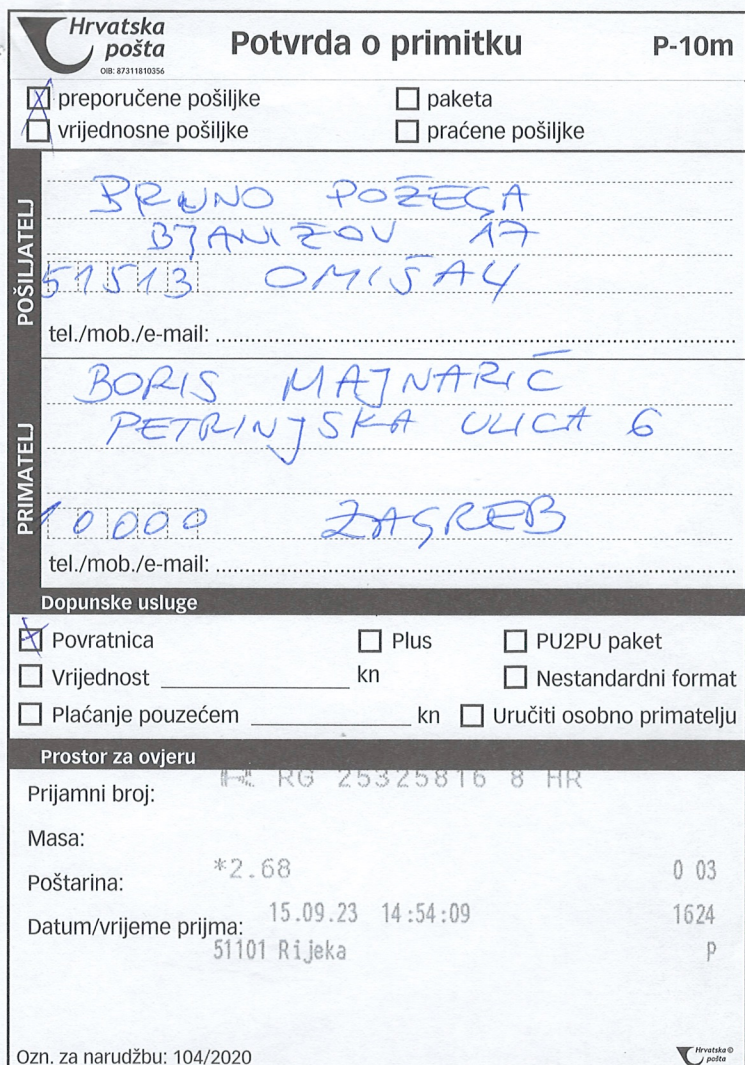 Hrvatska
pošta
OIB: 87311810356
Potvrda o primitku
P-10m
preporučene pošiljke
paketa
vrijednosne pošiljke
praćene pošiljke
POŠILJATELJ
BRUNO POŽEGA
BJANIŽOV 17
51513 OMIŠALJ
tel./mob./e-mail:
PRIMATELJ
BORIS MAJNARIĆ
PETRINJSKA ULICA 6
10000 ZAGREB
tel./mob./e-mail:
Dopunske usluge
Povratnica
Plus
PU2PU paket
Vrijednost kn
Nestandardni format
Plaćanje pouzećem kn
Uručiti osobno primatelju
Prostor za ovjeru
RG 25325816 8 HR
Prijamni broj:
Masa:
*2.68 0 03
Poštarina:
Datum/vrijeme prijma: 15.09.23 14:54:09 1624
51101 Rijeka P
Ozn. za narudžbu: 104/2020
Hrvatska
pošta